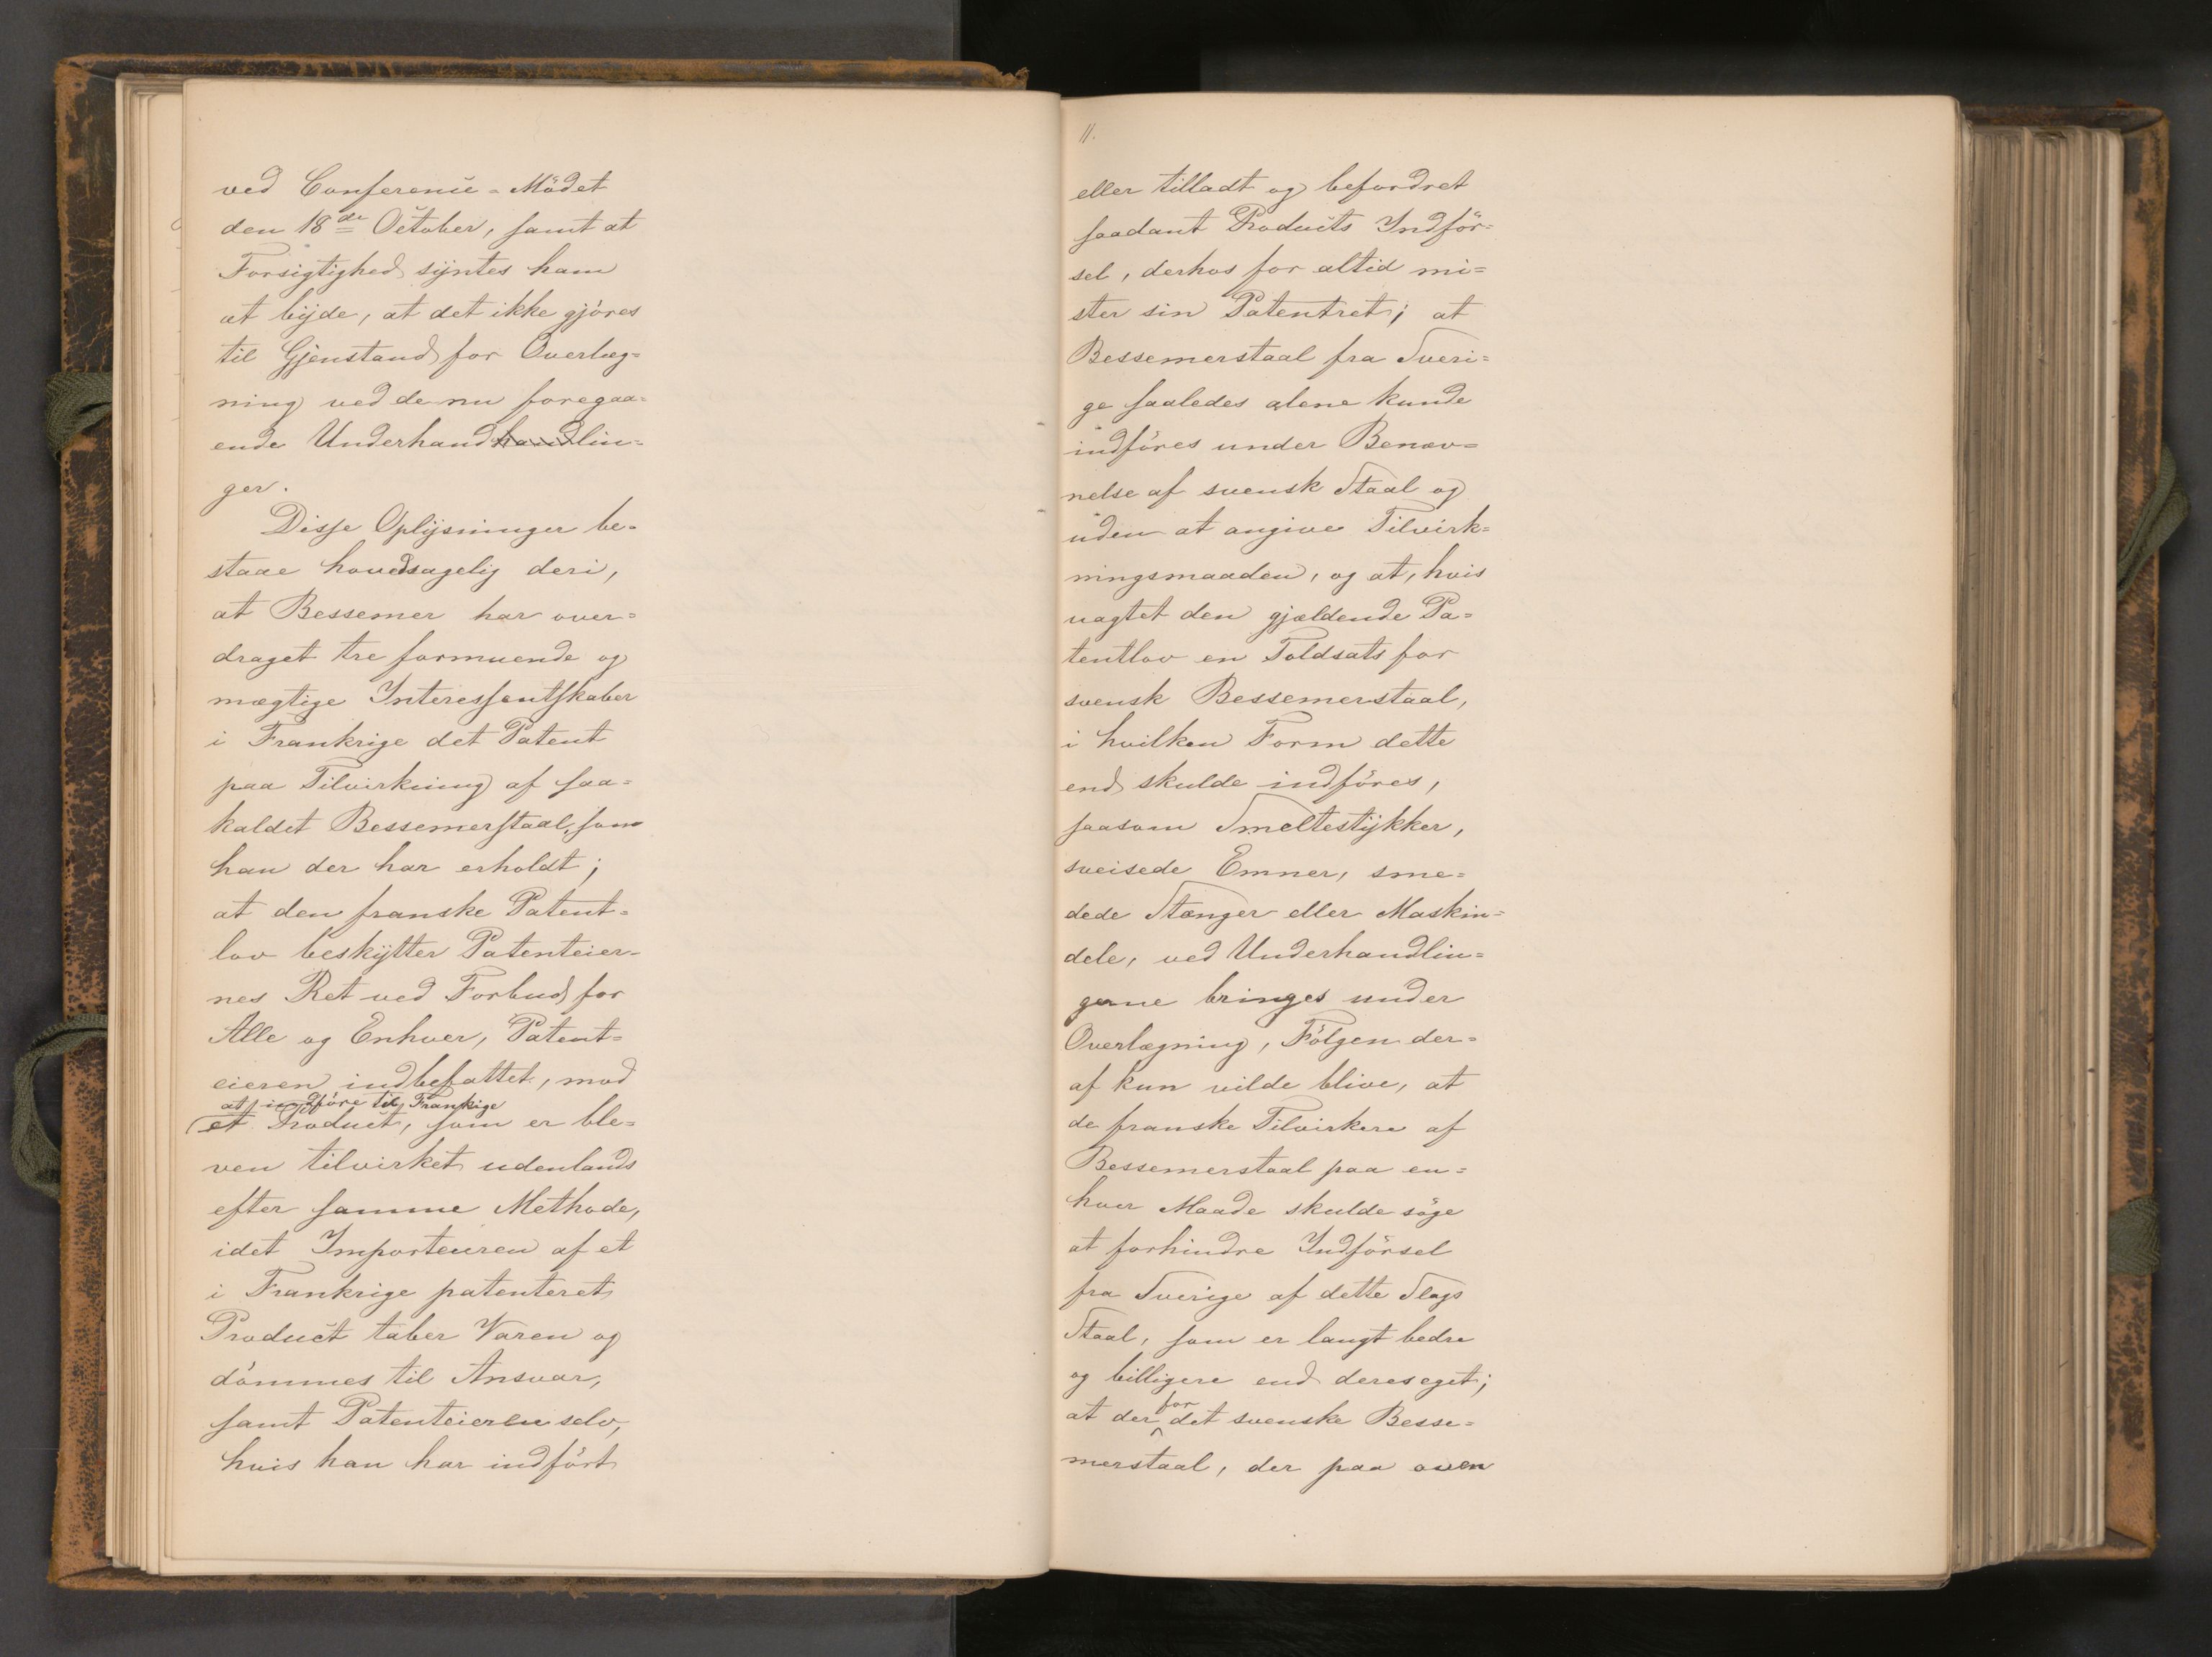 ved Conferencie-Mödet
den 18de October, samt at
Forsigtighed syntes ham
at byde, at det ikke gjöres
til Gjenstand for Overlæg=
ning ved de nu foregaa=
ende Underhandhandlin=
ger.
Disse Oplysninger be=
staae hovedsagelig deri,
at Bessemer har over=
draget tre formuende og
mægtige Interessentskaber
i Frankrige det Patent
paa Tilvirkning af saa=
kaldet Bessemerstaal, som
han der har erholdt;
at den franske Patent=
lov beskytter Patenteier=
nes Ret ved Forbud for
Alle og Enhver, Patent=
eieren indbefattet, mod
at indföre til Frankige
et Product, som er ble=
ven tilvirket udenlands
efter samme Methode,
idet Importeuren af et
i Frankrige patenteret
Product taber Varen og
dömmes til Ansvar,
samt Patenteieren selv,
hvis han har indfört
11.
eller tilladt og befordret
saadant Products Indför=
sel, derhos for altid mi=
ster sin Patentret; at
Bessemerstaal fra Sveri=
ge saaledes alene kunde
indföres under Benæv=
nelse af svensk Staal og
uden at angive Tilvirk=
ningsmaaden, og at, hvis
uagtet den gjældende Pa=
tentlov en Toldsats for
svensk Bessemerstaal,
i hvilken Form dette
end skulde indföres,
saasom Smeltestykker,
sveisede Emner, sme=
dede Stænger eller Maskin=
dele, ved Underhandlin=
gerne bringes under
Overlægning, Fölgen der=
af kun vilde blive, at
de franske Tilvirkere af
Bessemerstaal paa en=
hver Maade skulde söge
at forhindre Indförsel
fra Sverige af dette Slags
Staal, som er langt bedre
og billigere end deres eget;
at der for det svenske Besse=
merstaal, der paa oven